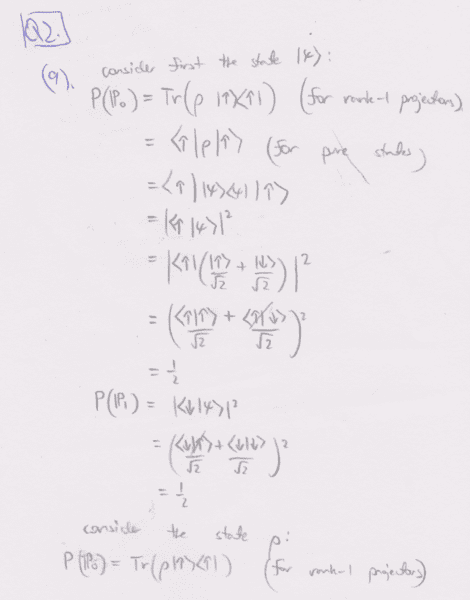 Q2.
(a). consider first the state |ψ⟩:
P(ℙ₀) = Tr(ρ |↑⟩⟨↑|) (for rank-1 projectors)
= ⟨↑|ρ|↑⟩ (for pure states)
= ⟨↑|ψ⟩⟨ψ|↑⟩
= |⟨↑|ψ⟩|²
= |⟨↑|(|↑⟩/√2 + |↓⟩/√2)|²
= (⟨↑|↑⟩/√2 + ⟨↑|↓⟩/√2)²
= 1/2
P(ℙ₁) = |⟨↓|ψ⟩|²
= (⟨↓|↑⟩/√2 + ⟨↓|↓⟩/√2)²
= 1/2
consider the state ρ:
P(ℙ₀) = Tr(ρ|↑⟩⟨↑|) (for rank-1 projectors)